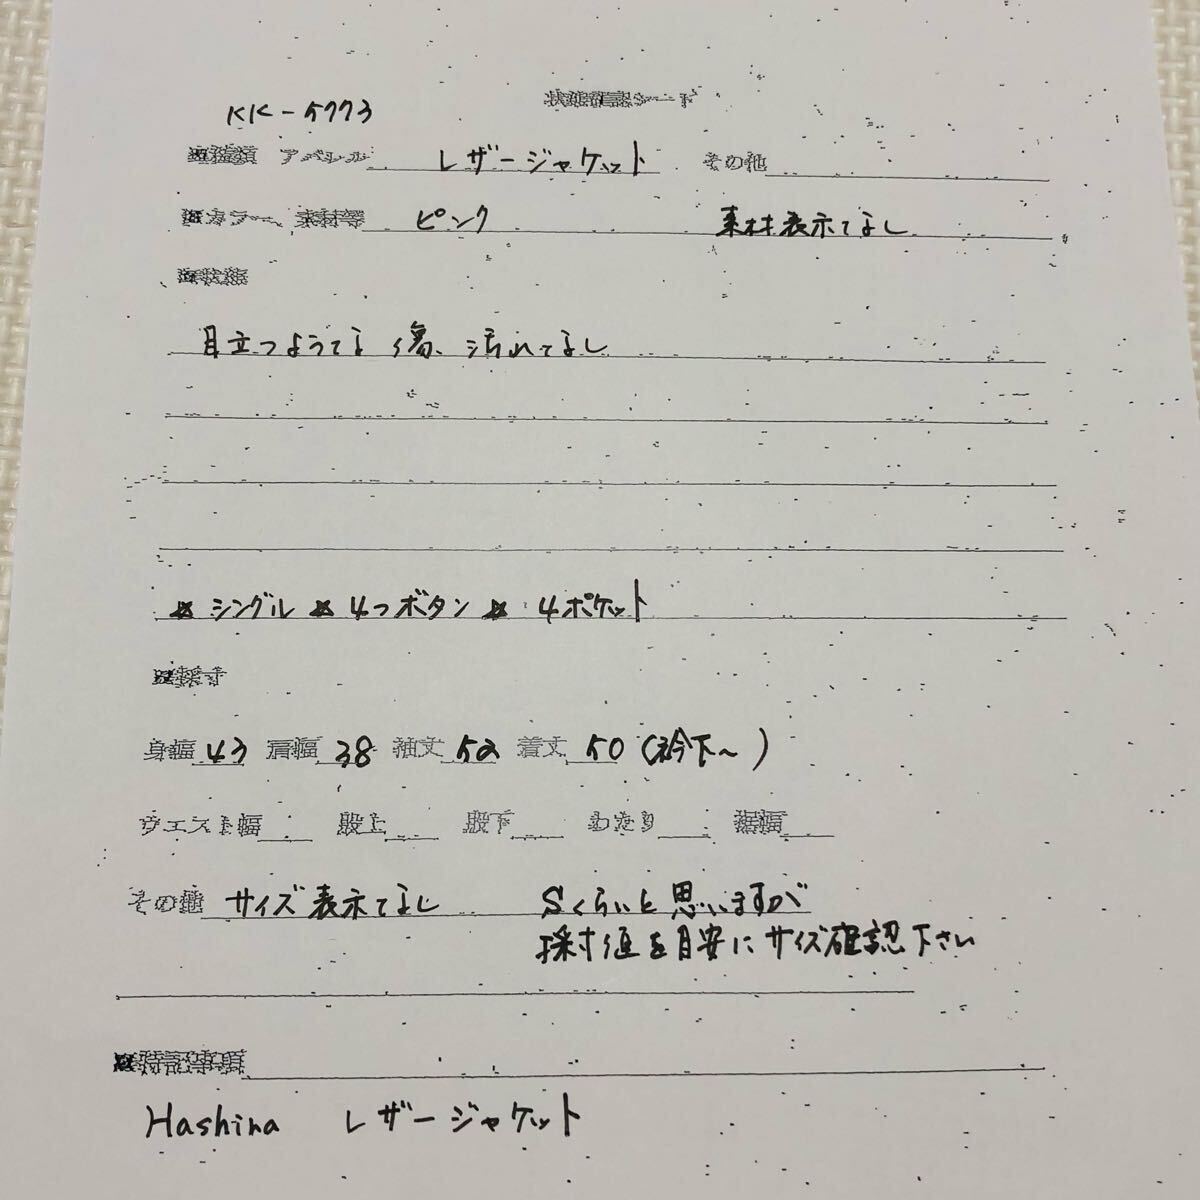 状態確認シート
KK-5773
■種類 アパレル レザージャケット その他
■カラー、素材等 ピンク 素材表示なし
■状態
目立つような傷、汚れなし
☆シングル ☆4つボタン ☆ 4ポケット
■採寸
身幅 43 肩幅 38 袖丈 52 着丈 50 (衿下~)
ウエスト幅 股上 股下 わたり 裾幅
その他 サイズ表示なし Sくらいと思いますが
採寸値を目安にサイズ確認下さい
■特記事項
Hashina レザージャケット